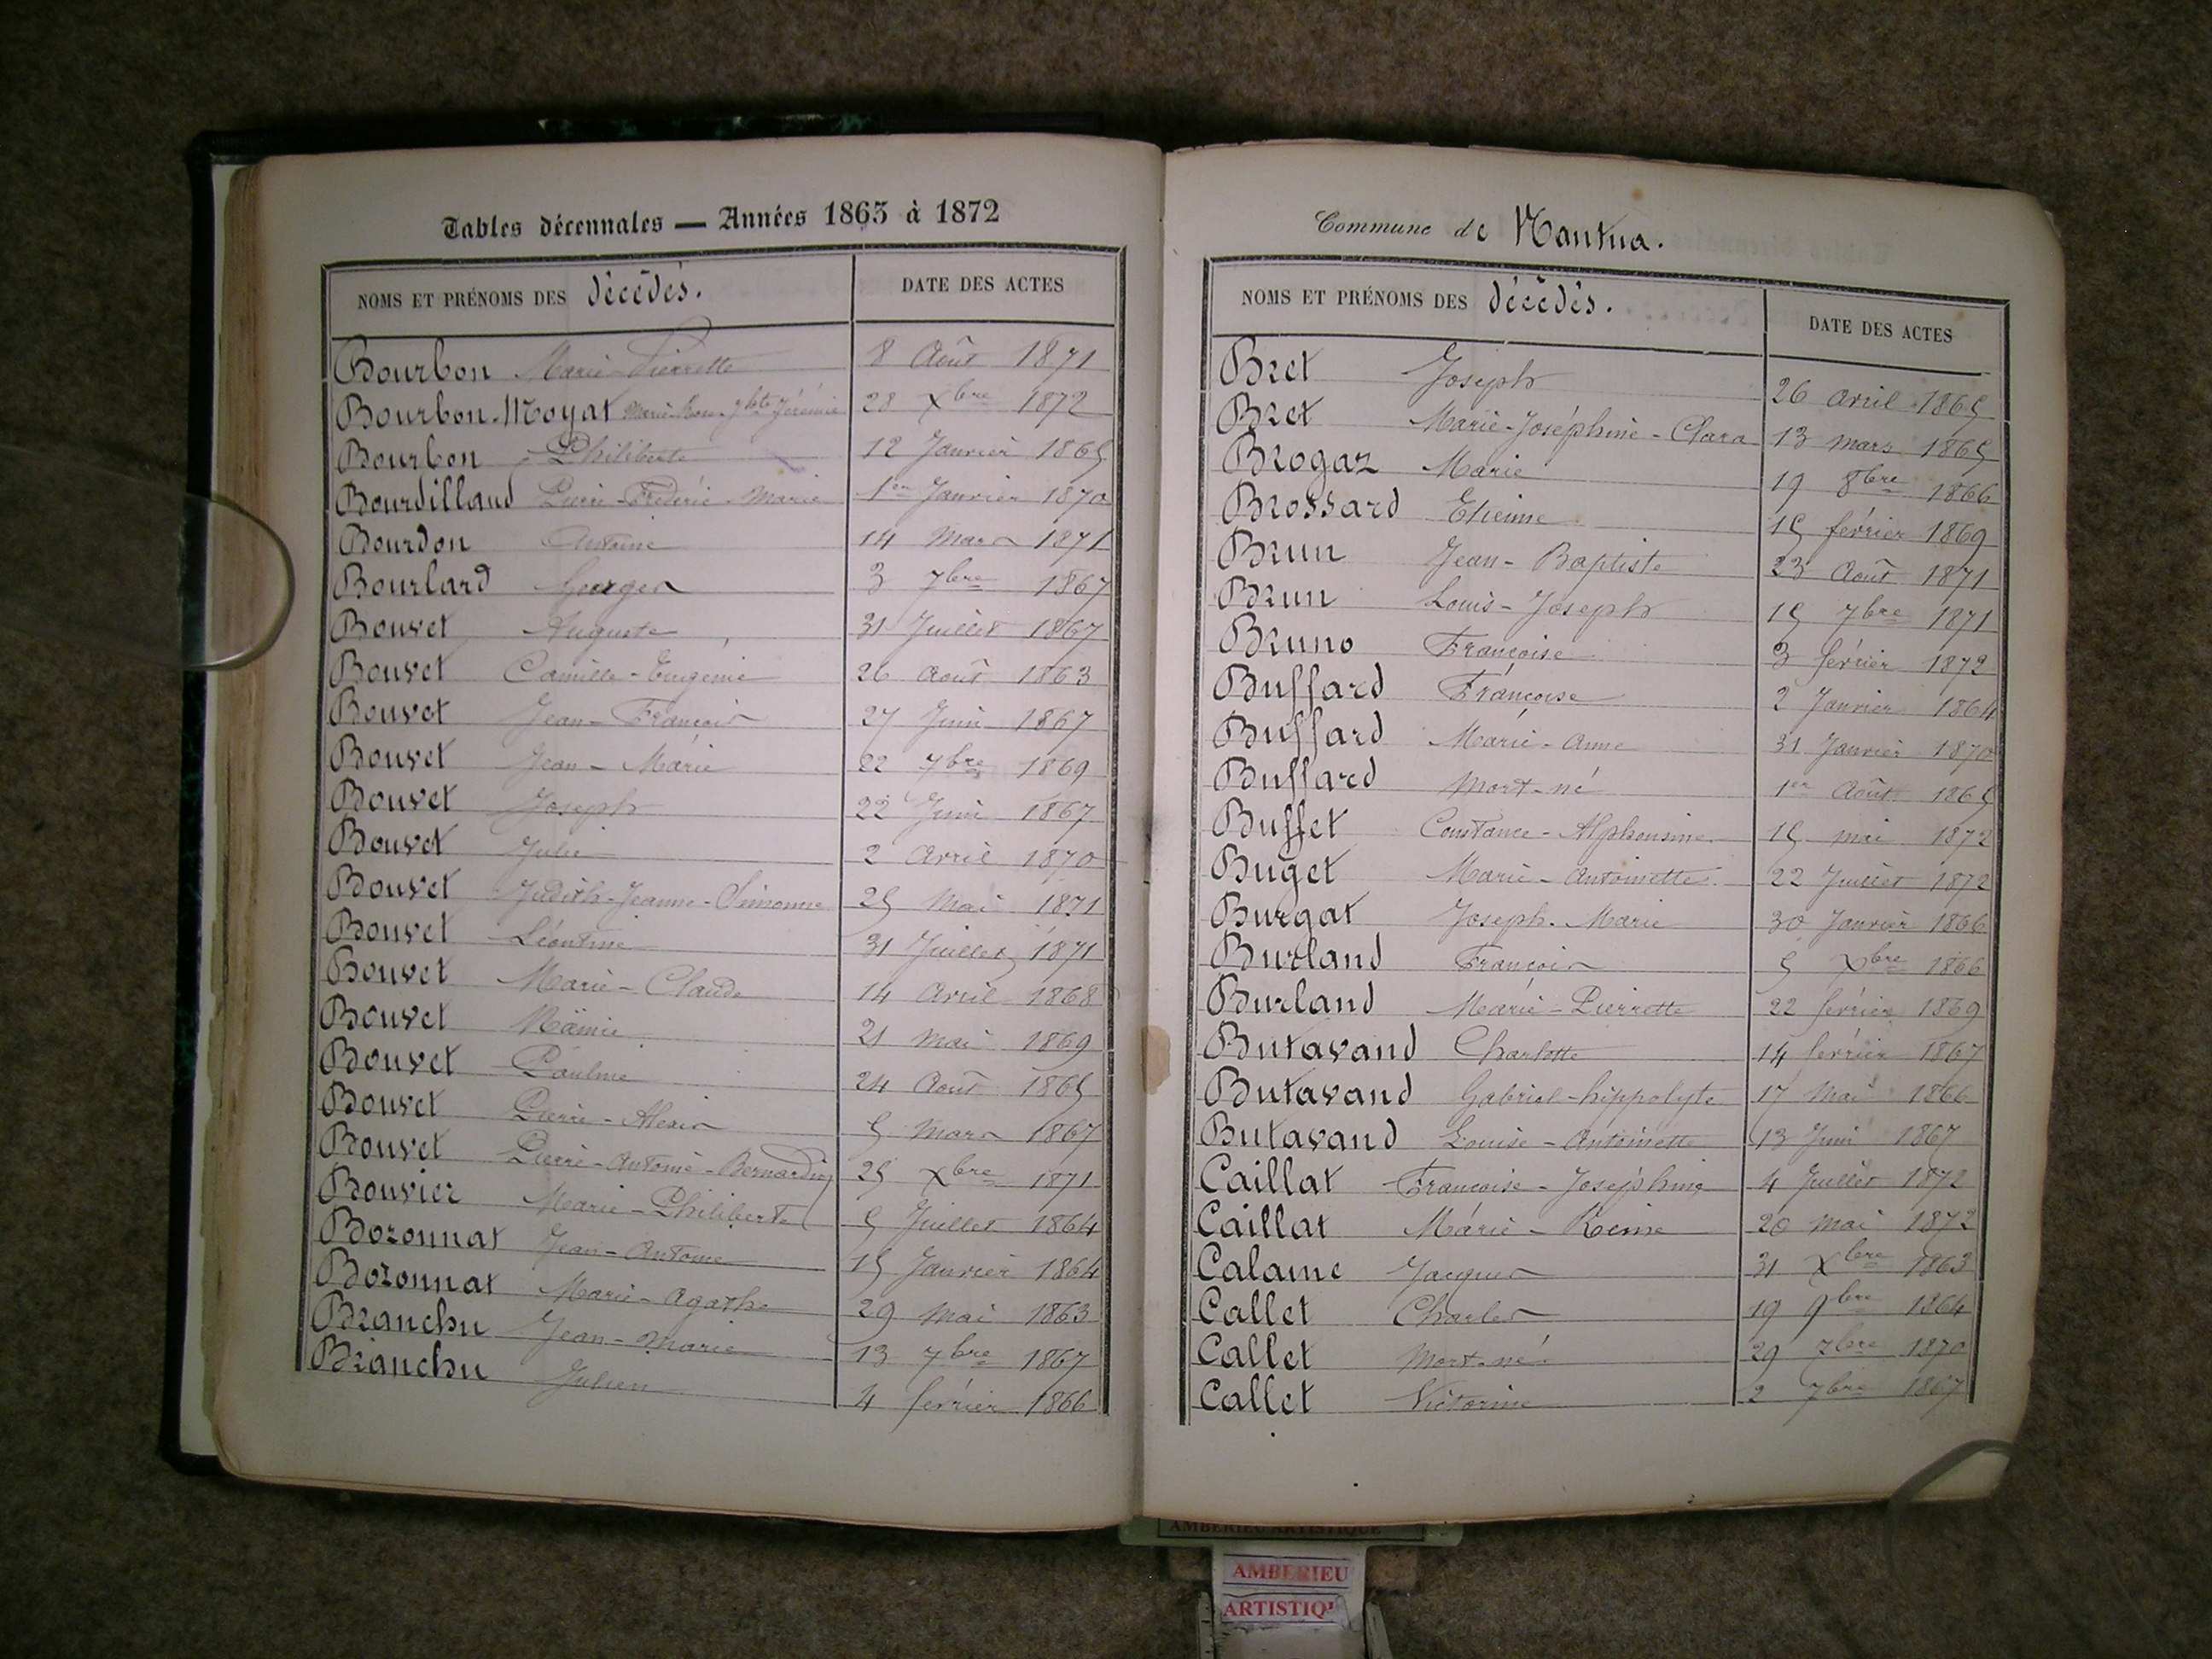 Tables décennales — Années 1863 à 1872
NOMS ET PRÉNOMS DES décédés. DATE DES ACTES
Bourbon Marie-Pierrette 8 Août 1871
Bourbon-Moyat Jérémie 28 Xbre 1872
Bourbon Philiberte 12 Janvier 1865
Bourdilland Frédéric-Marie 1er Janvier 1870
Bourdon Antoine 14 Mars 1871
Bourlard Georges 3 7bre 1867
Bouvet Auguste 31 Juillet 1867
Bouvet Camille-Eugénie 26 Août 1863
Bouvet Jean-François 27 Juin 1867
Bouvet Jean-Marie 22 7bre 1869
Bouvet Joseph 22 Juin 1867
Bouvet Julie 2 Avril 1870
Bouvet Judith-Jeanne-Simonne 25 Mai 1871
Bouvet Léontine 31 Juillet 1871
Bouvet Marie-Claude 14 Avril 1868
Bouvet 21 Mai 1869
Bouvet Pauline 24 Août 1865
Bouvet Pierre-Alexis 5 Mars 1867
Bouvet Pierre-Antoine-Bernardin 25 Xbre 1871
Bouvier Marie-Philiberte 5 Juillet 1864
Bozonnat Jean-Antoine 15 Janvier 1864
Bozonnat Marie-Agathe 29 Mai 1863
Branchu Jean-Marie 13 7bre 1867
Branchu Julien 4 février 1866
Commune de Nantua.
NOMS ET PRÉNOMS DES décédés. DATE DES ACTES
Bret Joseph 26 avril 1865
Bret Marie-Joséphine-Clara 13 mars 1865
Brogaz Marie 19 8bre 1866
Brossard Etienne 15 février 1869
Brun Jean-Baptiste 23 Août 1871
Brun Louis-Joseph 15 7bre 1871
Bruno Françoise 3 février 1872
Buffard Françoise 2 Janvier 1864
Buffard Marie-Anne 31 Janvier 1870
Buffard Mort-né 1er Août 1865
Buffet Constance-Alphonsine 15 mai 1872
Buget Marie-Antoinette 22 Juillet 1872
Burgat Joseph-Marie 30 Janvier 1866
Burland François 5 Xbre 1866
Burland Marie-Pierrette 22 février 1869
Butavand Charlotte 14 février 1867
Butavand Gabriel-hippolyte 17 Mai 1866
Butavand Louise-Antoinette 13 Juin 1867
Caillat Françoise-Joséphine 4 Juillet 1872
Caillat Marie-Reine 20 Mai 1872
Calame Jacques 31 Xbre 1863
Callet Charles 19 9bre 1864
Callet Mort-né 29 7bre 1870
Callet Victorine 2 7bre 1867
AMBERIEU ARTISTIQUE
AMBERIEU
ARTISTIQ